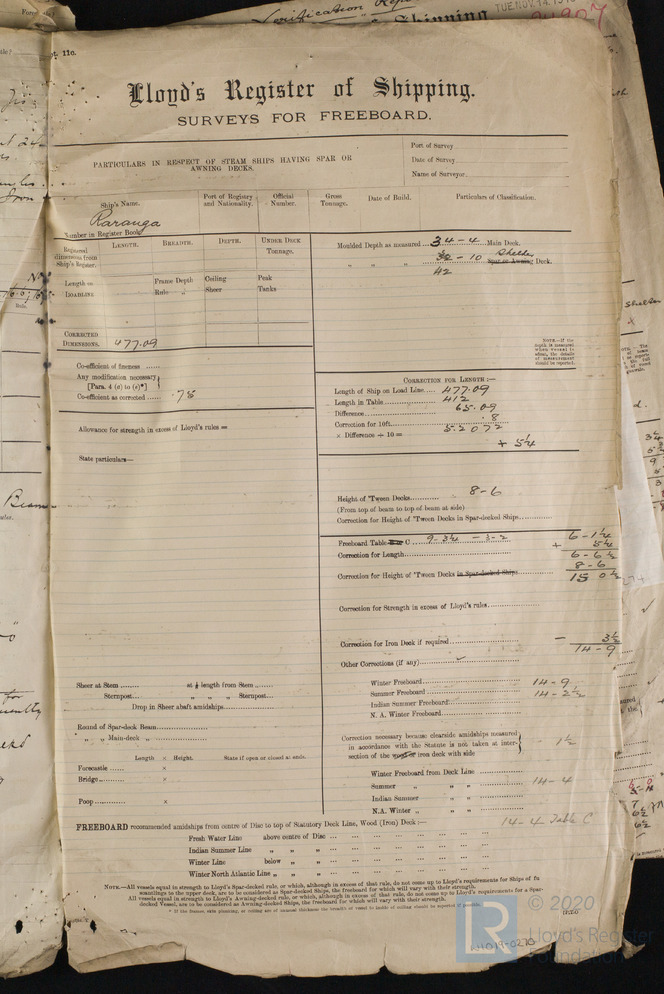 Verification Rep
Shipping
TUE.NOV.14.19
Lloyd's Register of Shipping.
SURVEYS FOR FREEBOARD.
PARTICULARS IN RESPECT OF STEAM SHIPS HAVING SPAR OR AWNING DECKS.
Port of Survey
Date of Survey
Name of Surveyor
Ship's Name. Port of Registry and Nationality. Official Number. Gross Tonnage. Date of Build. Particulars of Classification.
Raranga
Number in Register Book
LENGTH. BREADTH. DEPTH. UNDER DECK TONNAGE.
Registered dimensions from Ship's Register.
Length on LOADLINE
Frame Depth Ceiling Peak
Rule " Sheer Tanks
CORRECTED DIMENSIONS. 477.09
Moulded Depth as measured 34-4 Main Deck.
" " " 32-10 Shelter Spar or Awning Deck.
42
NOTE.—If the depth is measured when vessel is afloat, the details of measurement should be reported.
Co-efficient of fineness
Any modification necessary
[Para. 4 (a) to (e)*]
Co-efficient as corrected .78
Allowance for strength in excess of Lloyd's rules =
State particulars—
CORRECTION FOR LENGTH:—
Length of Ship on Load Line 477.09
Length in Table 412
Difference 65.09
Correction for 10ft. .8
× Difference ÷ 10 = 5.2072
+ 5¼
Height of 'Tween Decks 8-6
(From top of beam to top of beam at side)
Correction for Height of 'Tween Decks in Spar-decked Ships
Freeboard Table C 9-3¼ - 3-2 6-1¼
Correction for Length + 5¼
6-6½
Correction for Height of 'Tween Decks in Spar-decked Ships 8-6
15 0½
Correction for Strength in excess of Lloyd's rules
Correction for Iron Deck if required - 3½
14-9
Other Corrections (if any)
Winter Freeboard 14-9
Summer Freeboard 14-2½
Indian Summer Freeboard
N. A. Winter Freeboard
Correction necessary because clearside amidships measured in accordance with the Statute is not taken at intersection of the wood or iron deck with side - 1½
Winter Freeboard from Deck Line
Summer " " " 14-4
Indian Summer " "
N.A. Winter " " "
Sheer at Stem at ⅛ length from Stem
Sternpost " " " Sternpost
Drop in Sheer abaft amidships
Round of Spar-deck Beam
" " Main-deck "
Length × Height. State if open or closed at ends.
Forecastle ×
Bridge ×
Poop ×
14-4 Table C
FREEBOARD recommended amidships from centre of Disc to top of Statutory Deck Line, Wood (Iron) Deck:—
Fresh Water Line above centre of Disc
Indian Summer Line " " "
Winter Line below " "
Winter North Atlantic Line " " "
NOTE.—All vessels equal in strength to Lloyd's Spar-decked rule, or which, although in excess of that rule, do not come up to Lloyd's requirements for Ships of fu
scantlings to the upper deck, are to be considered as Spar-decked Ships, the freeboard for which will vary with their strength.
All vessels equal in strength to Lloyd's Awning-decked rule, or which, although in excess of that rule, do not come up to Lloyd's requirements for a Spar-
decked Vessel, are to be considered as Awning-decked Ships, the freeboard for which will vary with their strength.
© 2020
Lloyd's Register
Foundation
LR
W1019-0270